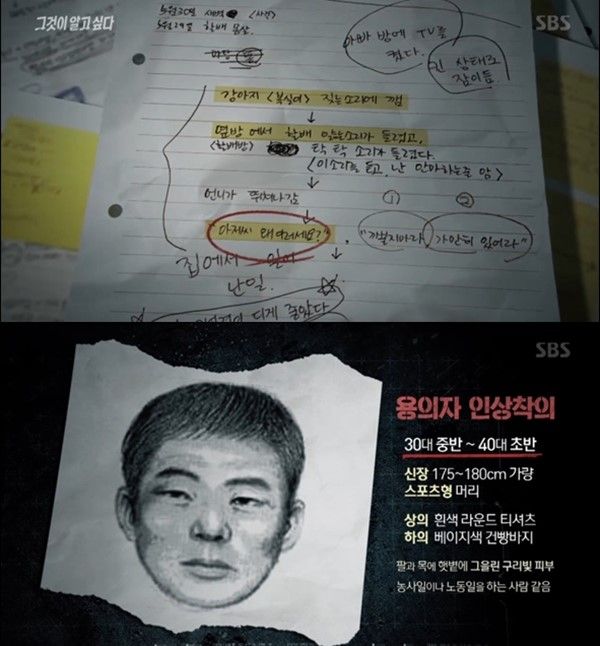 그것이 알고 싶다
SBS
5월 29일 할배 몸살.
아빠 방에 TV를
켰다.
긴 상태로
잠이듦
강아지 <복실이> 짖는소리에 깸
↓
옆방에서 할배 앓는소리가 들렸고,
<할배방> 탁 탁 소리가 들렸다.
<이소리를 듣고, 난 안마하는줄 암>
↓
언니가 뛰쳐나감
① ②
↓
"아제씨 왜이러세요?" "까불지마라" "가만히 있어라"
집에서
난일.
↓
SBS
용의자 인상착의
30대 중반 ~ 40대 초반
신장 175~180cm 가량
스포츠형 머리
상의 흰색 라운드 티셔츠
하의 베이지색 건빵바지
팔과 목에 햇볕에 그을린 구리빛 피부
농사일이나 노동일을 하는 사람 같음